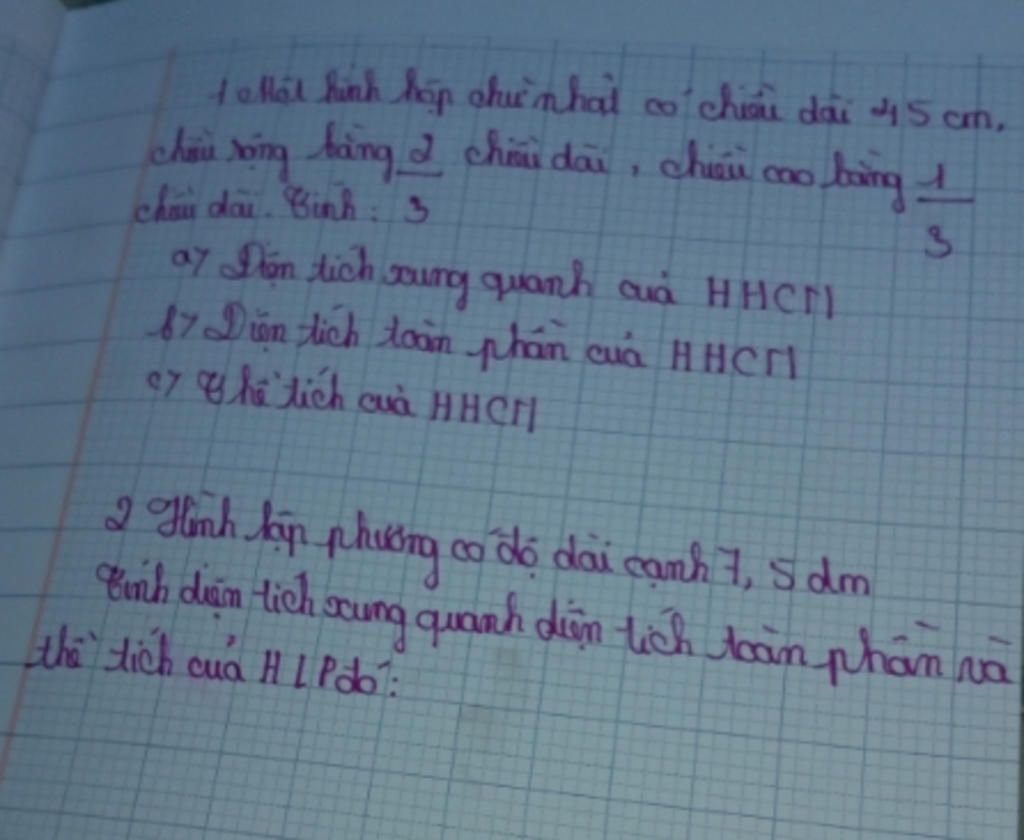 1 Một hình hộp chữ nhật có chiều dài 45 cm,
chiều rộng bằng 2/3 chiều dài, chiều cao bằng 1/3
chiều dài. Tính:
a> Diện tích xung quanh của HHCN
b> Diện tích toàn phần của HHCN
c> Thể tích của HHCN
2 Hình lập phương có độ dài cạnh 7,5 dm
Tính diện tích xung quanh diện tích toàn phần và
thể tích của HLP đó: